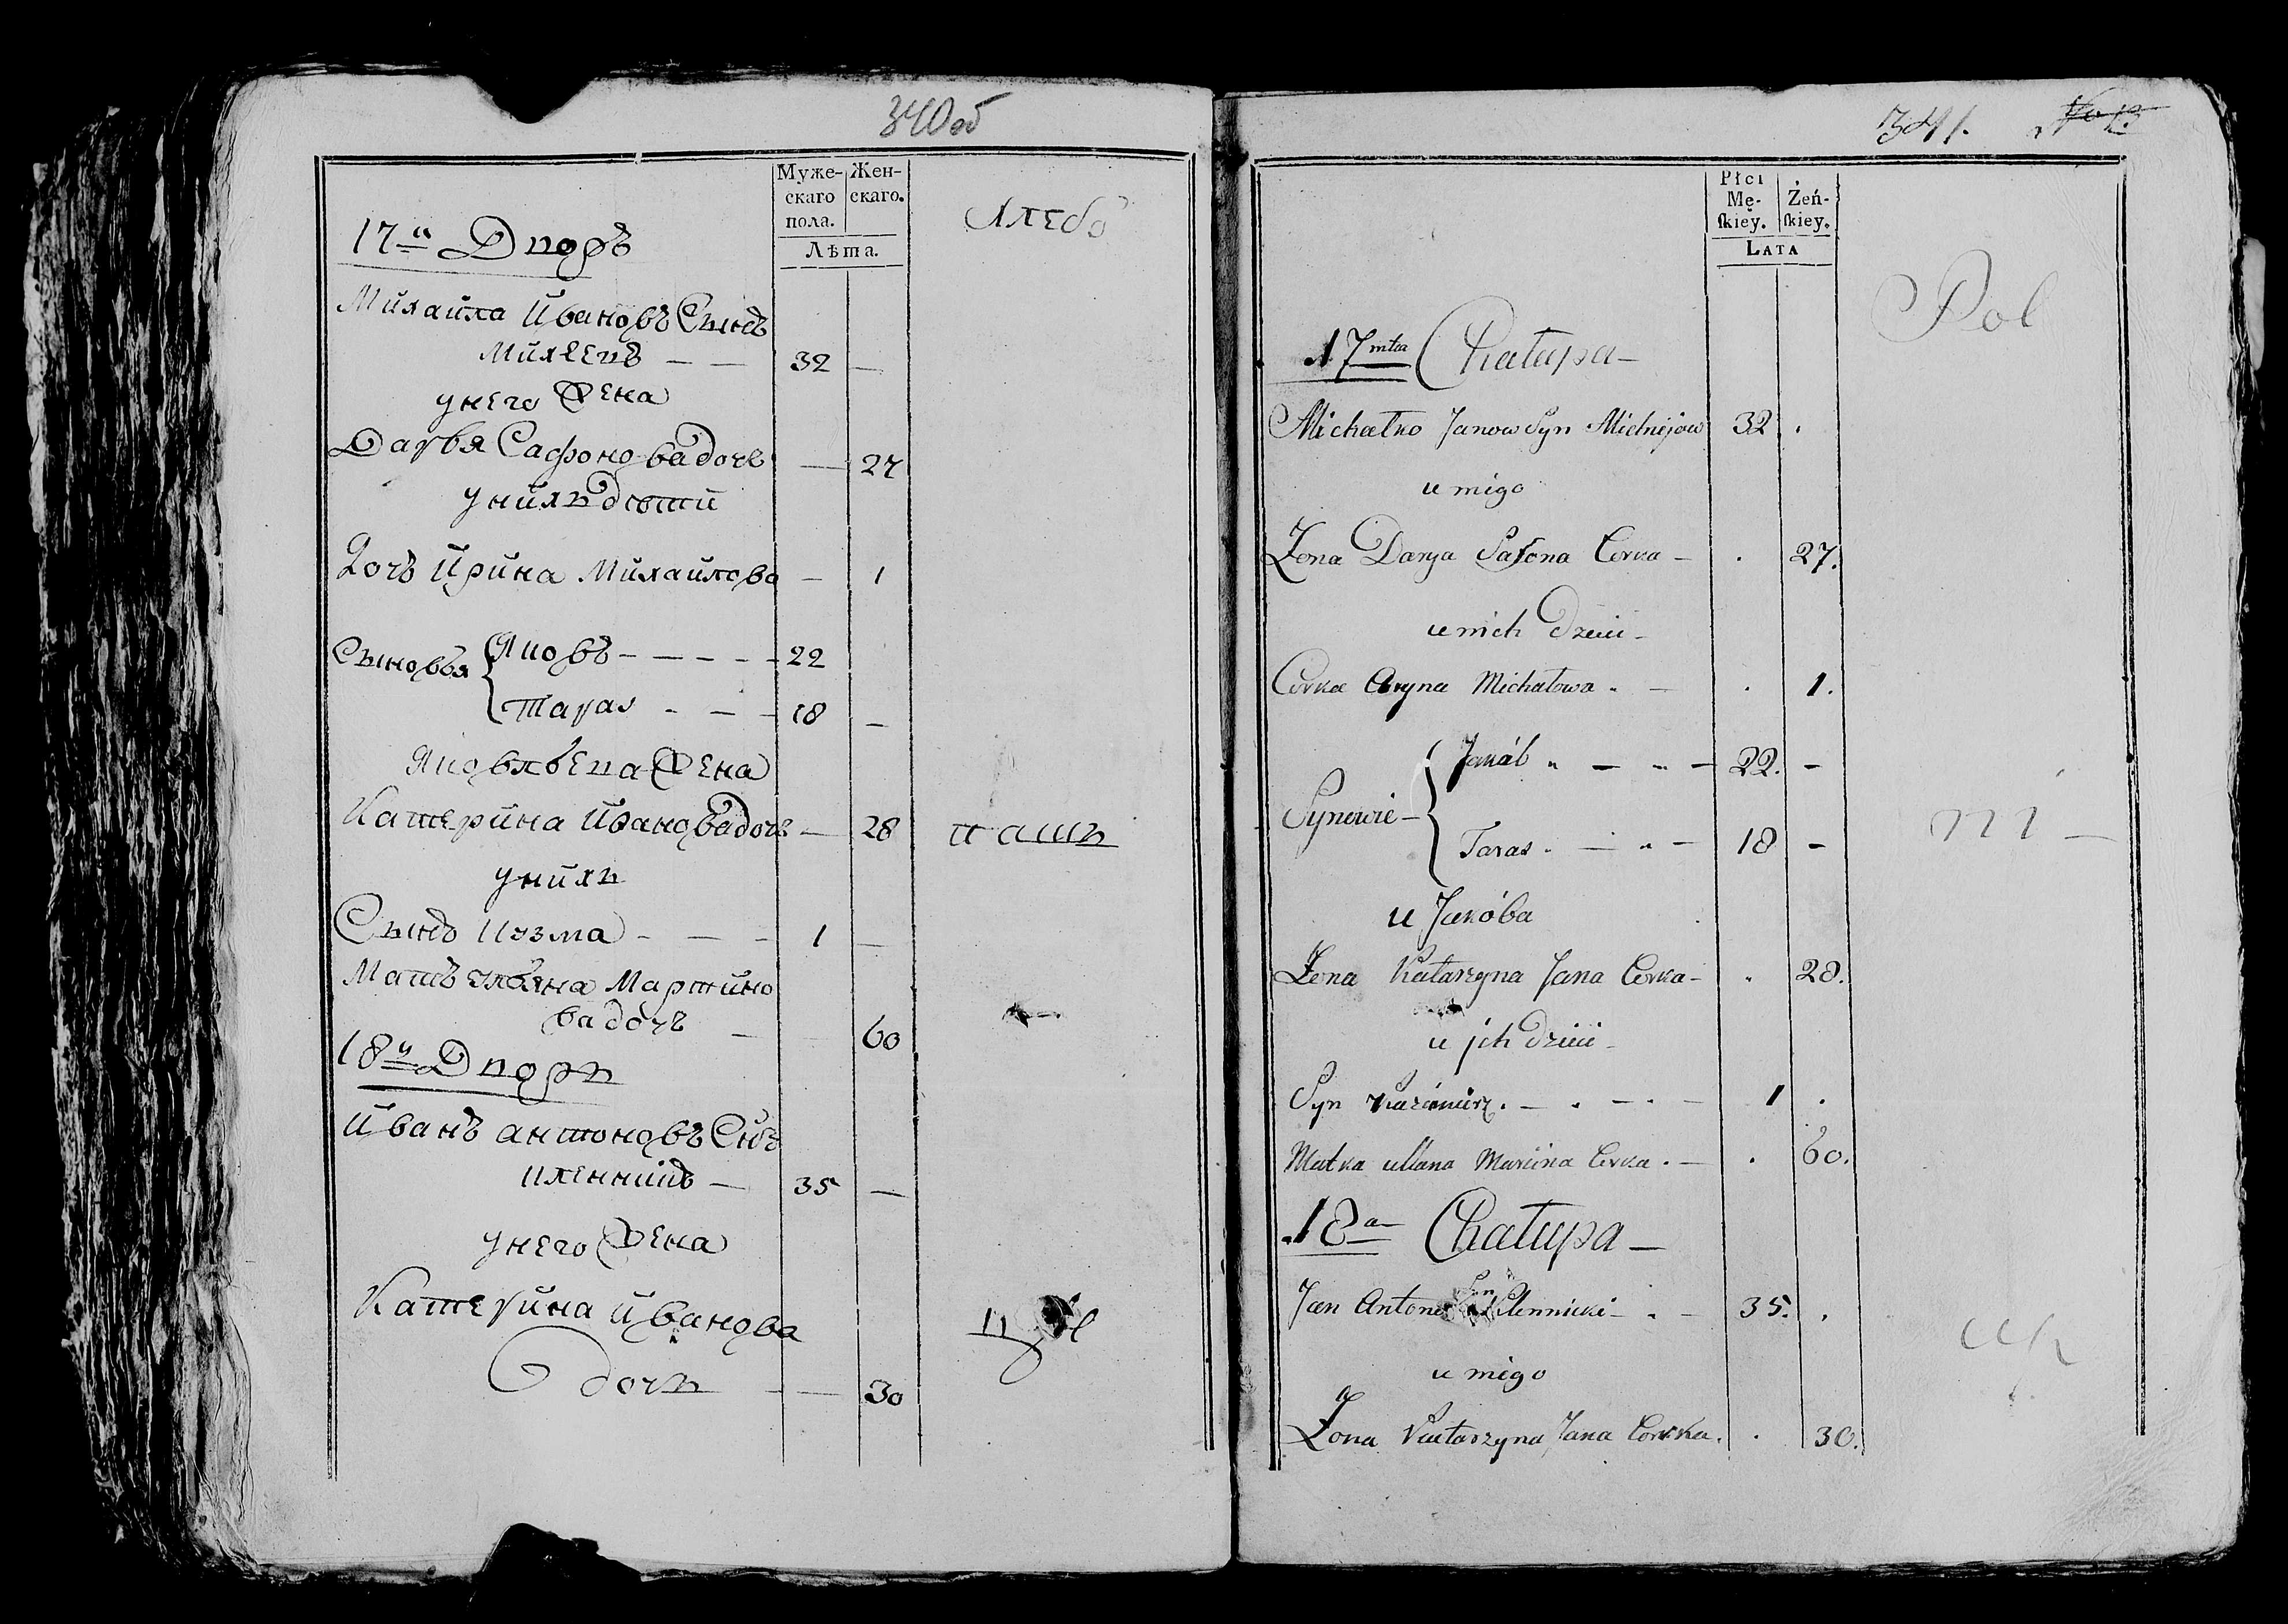 340об
Муже-
скаго
пола.
Жен-
скаго.
Лѣта.
хлебо
17й Дворъ
Михайла Ивановъ Сынъ
Михеевъ — — 32 —
унего Жена
Дарья Сафонова дочь — 27
унихъ дѣти
Дочь Ирина Михайлова — 1
Сыновья
Яковъ — — — — — 22
Тарас - — — 18 —
Яковлева Жена
Катерина Иванова дочь — 28
пашъ
унихъ
Сынъ Козма - — — 1 —
Мать Ульяна Мартино
ва дочь — 60
18й Дворъ
Иванъ антоновъ Снъ
— 35 —
унего Жена
Катерина Иванова
дочь — — 30
341.
Płci
Mę-
ſkiey.
Żeń-
ſkiey.
LATA
Rol
17mta Chałupa —
Michałko Janow Syn 32 .
u niego
Żona Darya Safona Corka — . 27.
u nich Dzieci -
Corka Aryna Michałowa . — . 1.
Synowie —
Jakób „ — — „ — 22. —
Taras . — „ — 18 —
ni —
u Jakóba
Żona Katarzyna Jana Corka — . 28.
u jch Dzieci -
Syn Kazimierz . — . — . — 1 .
Matka ullana Marcina Corka . — . 60.
18a Chałupa —
Jan Antonow Syn Klennicki — . — 35. .
u niego
Żona Katarzyna Jana Corka . . 30.